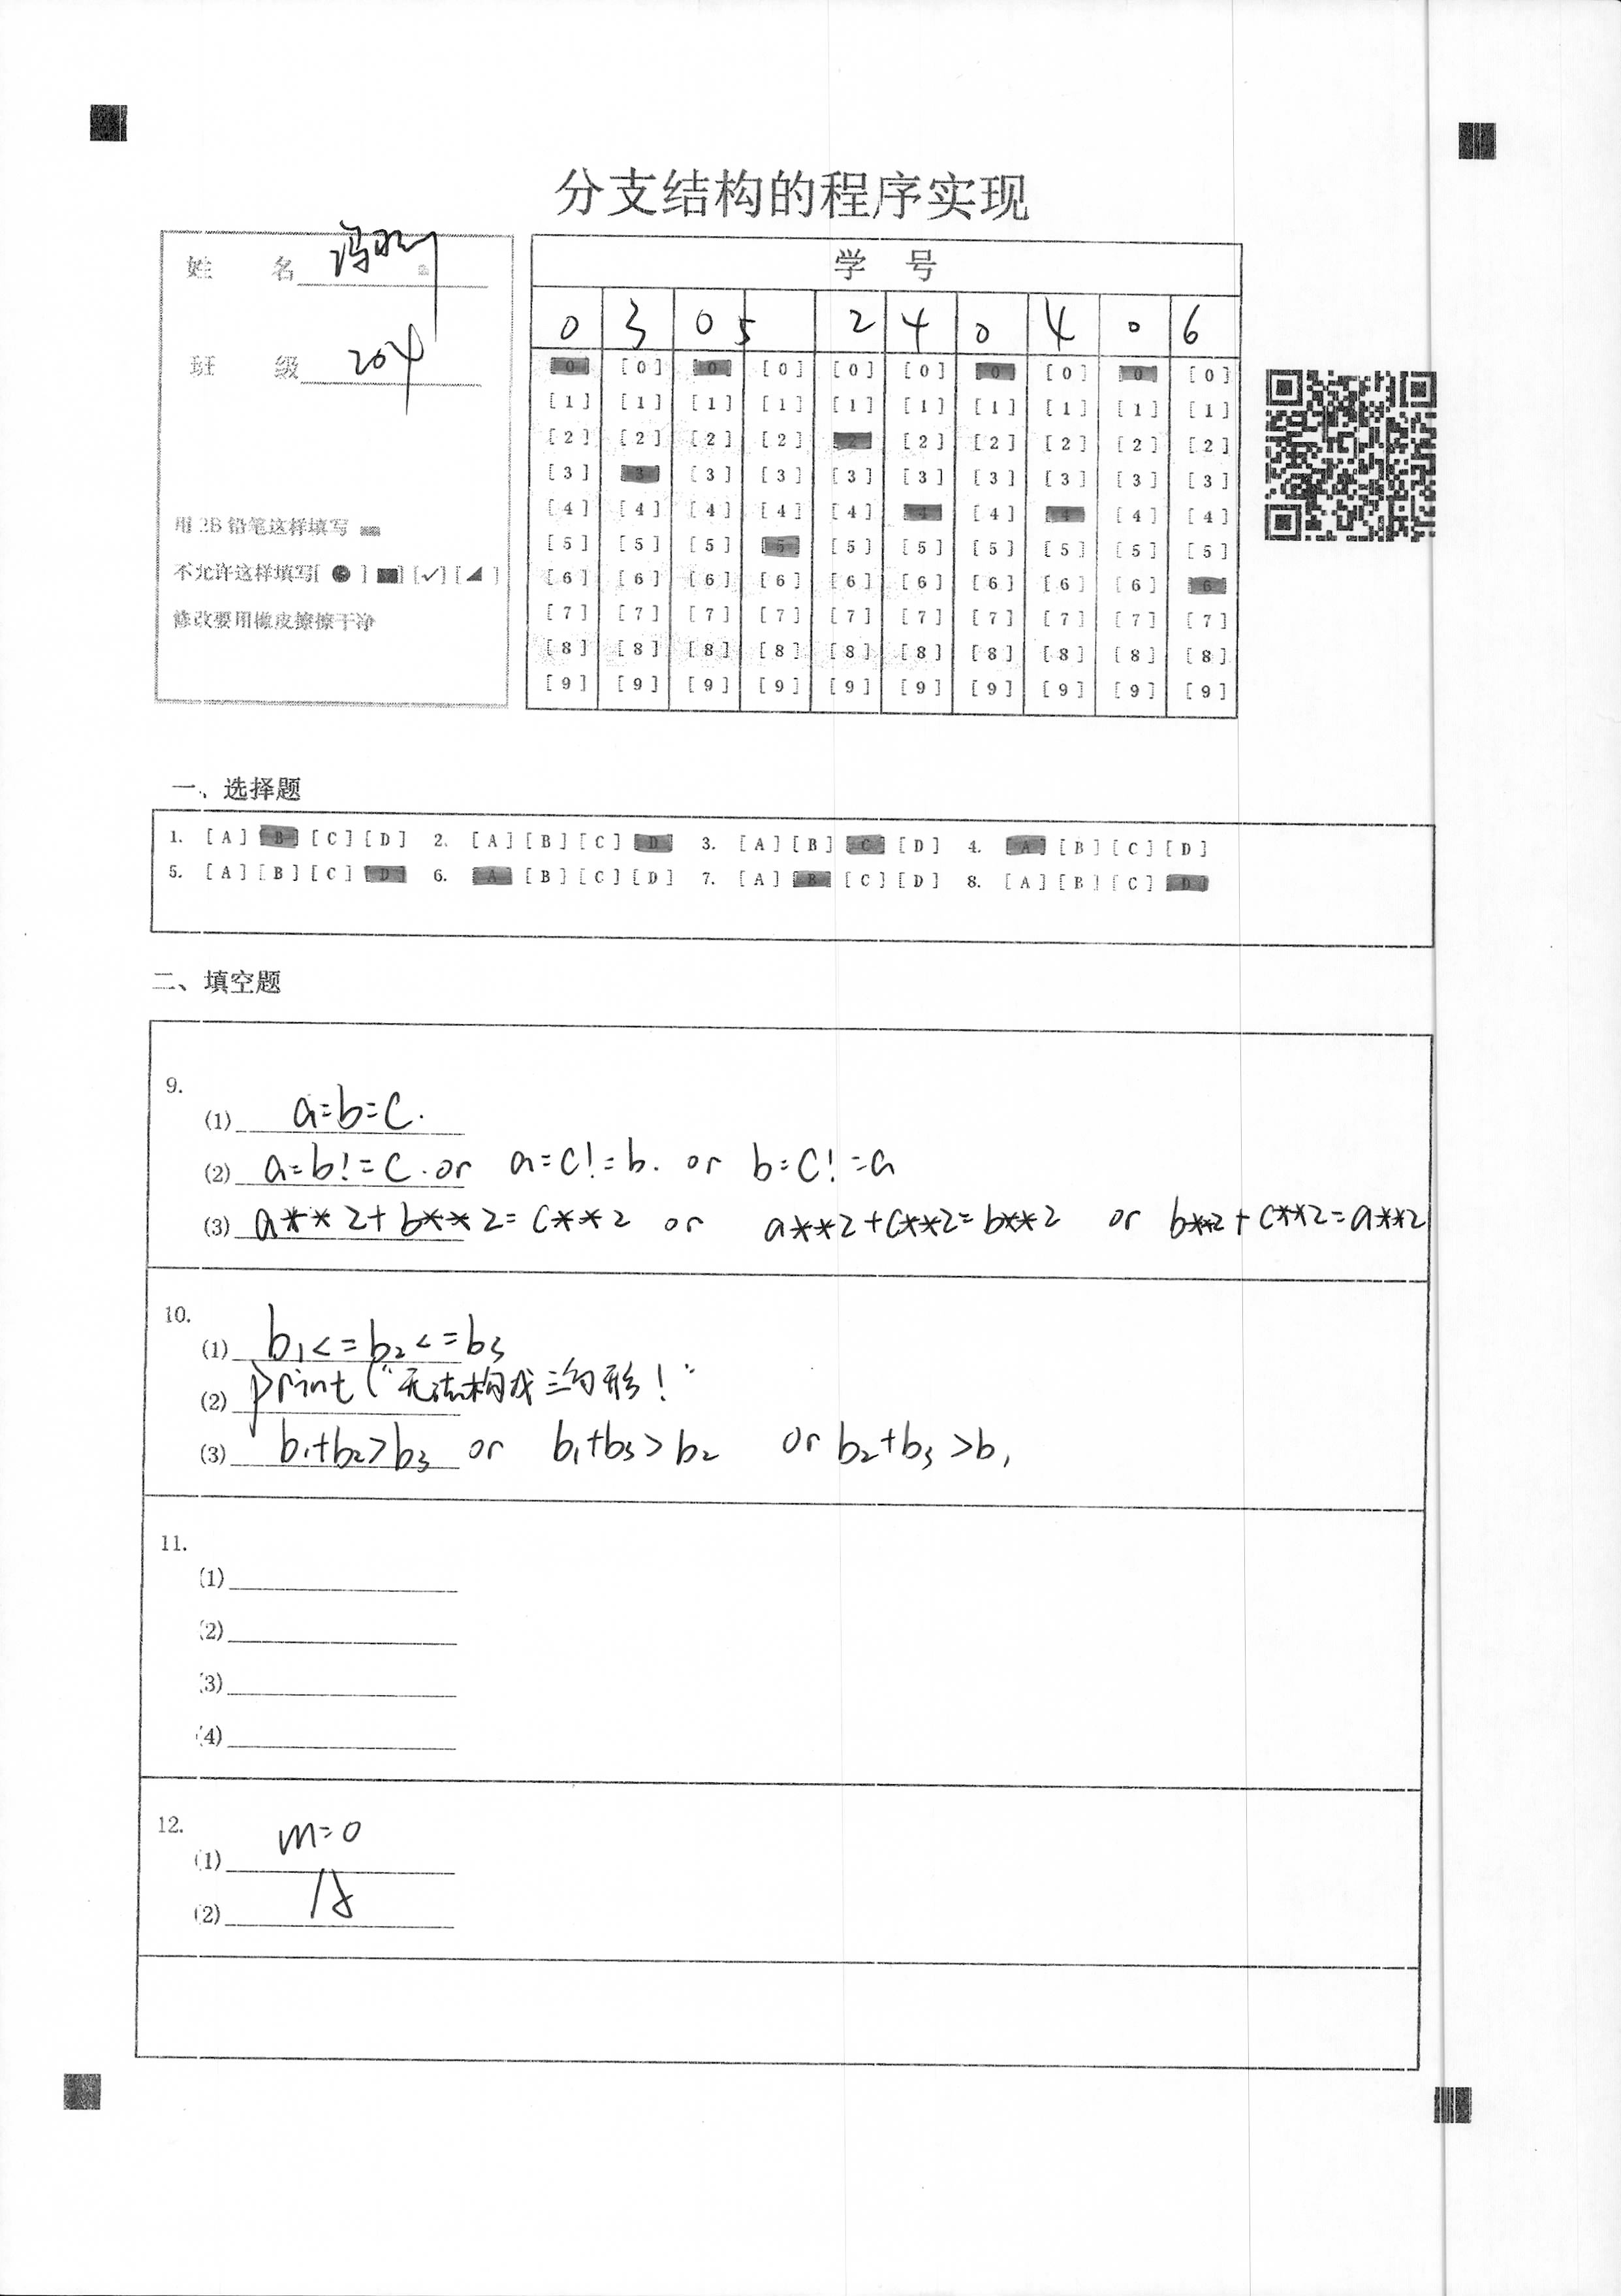 分支结构的程序实现
姓 名 冯
班 级 204
用 2B 铅笔这样填写
不允许这样填写[ ● ] [■] [✓] [◢ ]
修改要用橡皮擦擦干净
学 号
0 3 0 5 2 4 0 4 0 6
[0] [0] [0] [0] [0] [0] [0] [0] [0] [0]
[1] [1] [1] [1] [1] [1] [1] [1] [1] [1]
[2] [2] [2] [2] [2] [2] [2] [2] [2] [2]
[3] [3] [3] [3] [3] [3] [3] [3] [3] [3]
[4] [4] [4] [4] [4] [4] [4] [4] [4] [4]
[5] [5] [5] [5] [5] [5] [5] [5] [5] [5]
[6] [6] [6] [6] [6] [6] [6] [6] [6] [6]
[7] [7] [7] [7] [7] [7] [7] [7] [7] [7]
[8] [8] [8] [8] [8] [8] [8] [8] [8] [8]
[9] [9] [9] [9] [9] [9] [9] [9] [9] [9]
一、选择题
1. [A] [B] [C] [D] 2. [A] [B] [C] [D] 3. [A] [B] [C] [D] 4. [A] [B] [C] [D]
5. [A] [B] [C] [D] 6. [A] [B] [C] [D] 7. [A] [B] [C] [D] 8. [A] [B] [C] [D]
二、填空题
9.
(1) a=b=c.
(2) a=b!=c. or a=c!=b. or b=c!=a
(3) a**2+b**2=c**2 or a**2+c**2=b**2 or b**2+c**2=a**2
10.
(1) b1<=b2<=b3
(2) print("无法构成三角形!"
(3) b1+b2>b3 or b1+b3>b2 or b2+b3>b1
11.
(1)
(2)
(3)
(4)
12.
(1) m=0
(2) 18